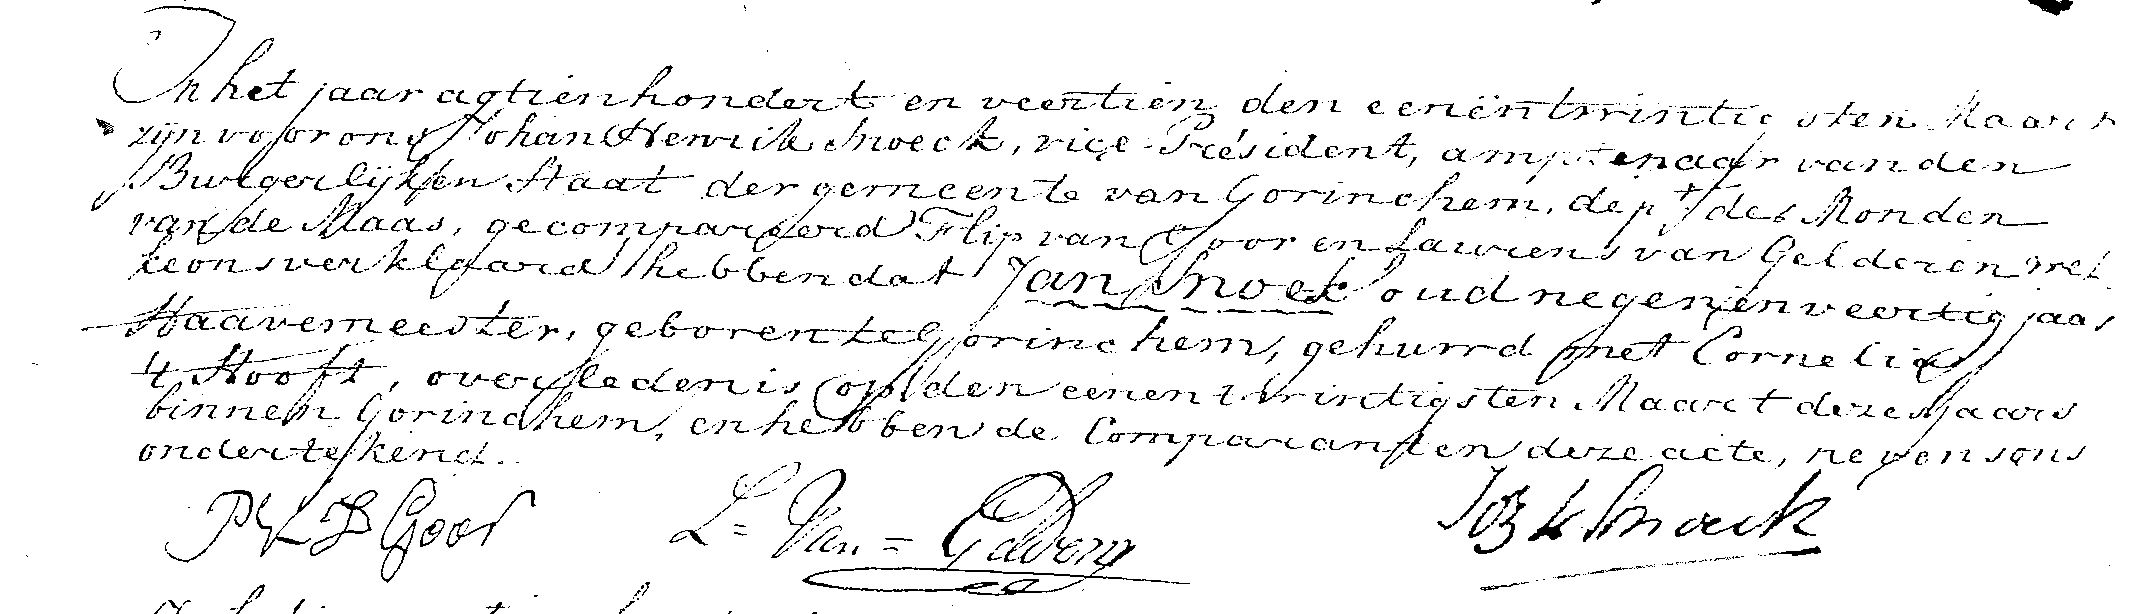 In het jaar agtienhondert en veertien den eenëntwintigsten Maart
zijn voor ons Johan Henrick Snoeck, vice-Président, amptenaar van den
Burgerlijken Staat der gemeente van Gorinchem, dept des Monden
van de Maas, gecompareerd Flip van Goor en Laurens van Gelderen met
te ons verklaard hebben dat Jan Snoek oud negenenveertig jaar
Haavemeester, geboren te Gorinchem, gehurrd met Cornelia
't Hooft, overleden is op den eenentwintigsten Maart dezes Jaars
binnen Gorinchem, en hebben de Comparanten deze acte, nevens ons
ondertekend.
Goor L = Van = Gelderen Snoeck